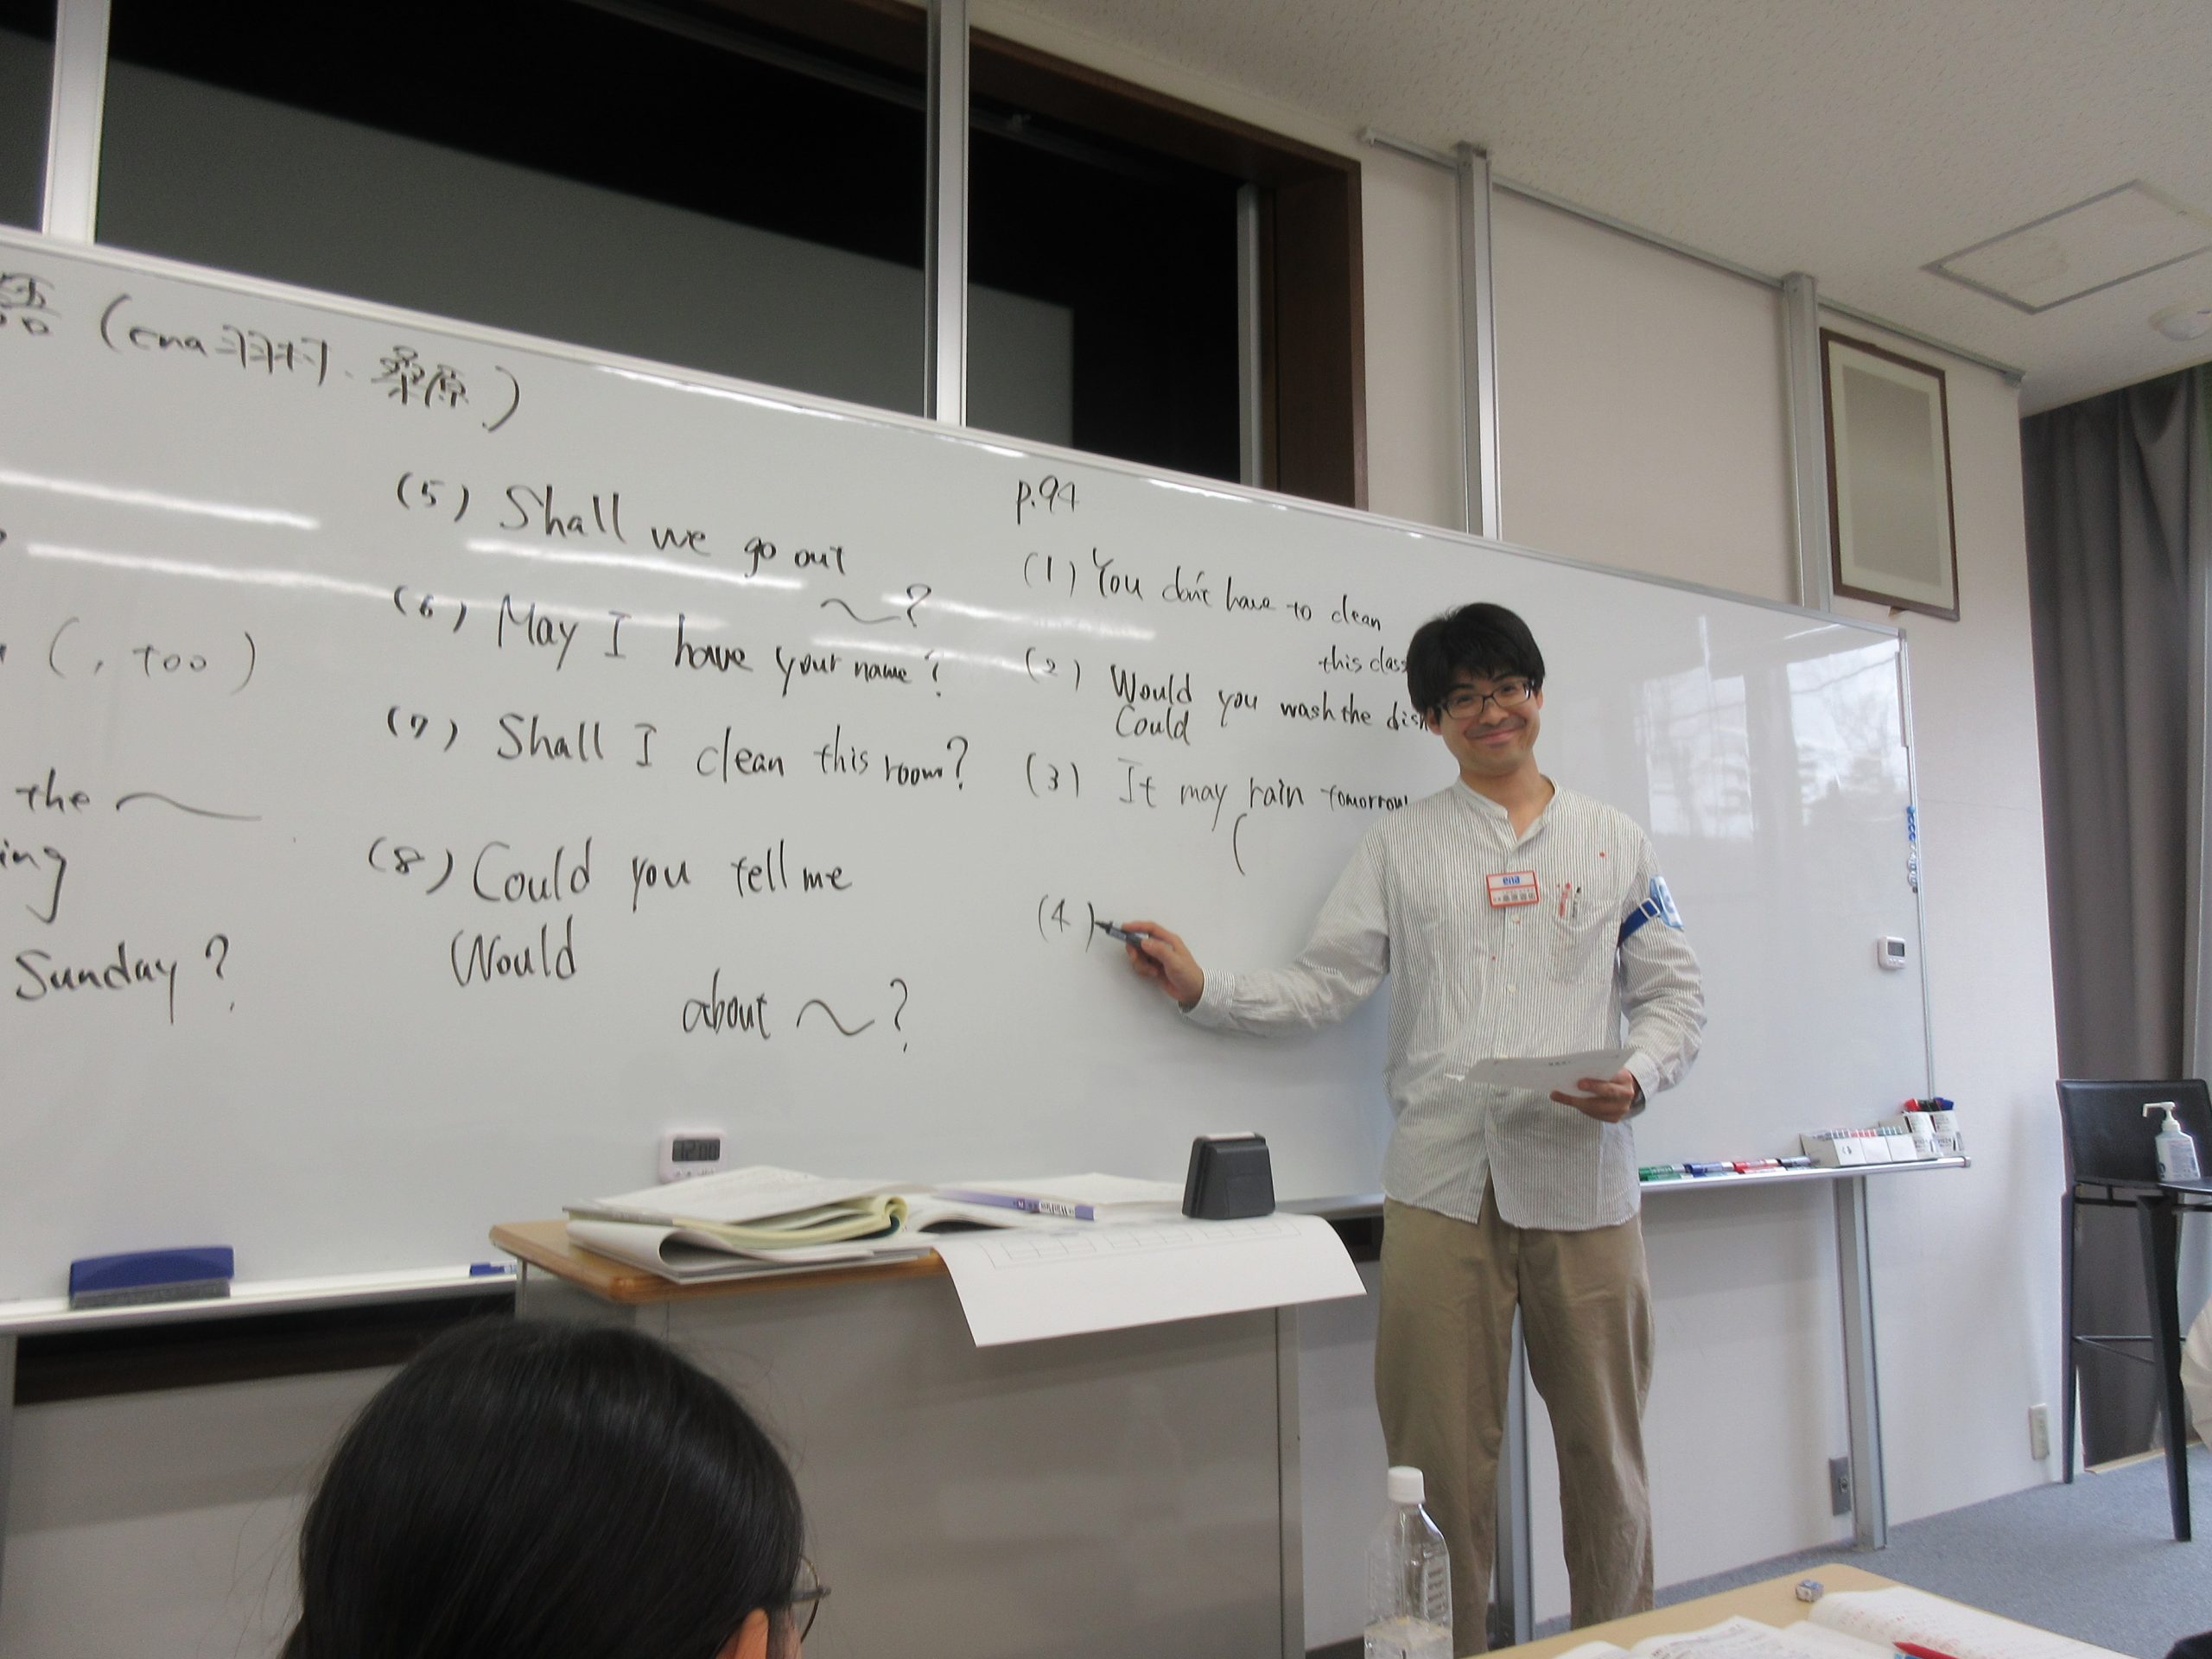 語 (ena羽村・桑原)
(, too)
the 〜
ing
Sunday?
(5) Shall we go out
〜?
(6) May I have your name?
(7) Shall I clean this room?
(8) Could you tell me
Would
about 〜?
p.94
(1) You don't have to clean
this class
(2) Would you wash the dish
Could
(3) It may rain tomorrow
(
(4)
ena
12:00